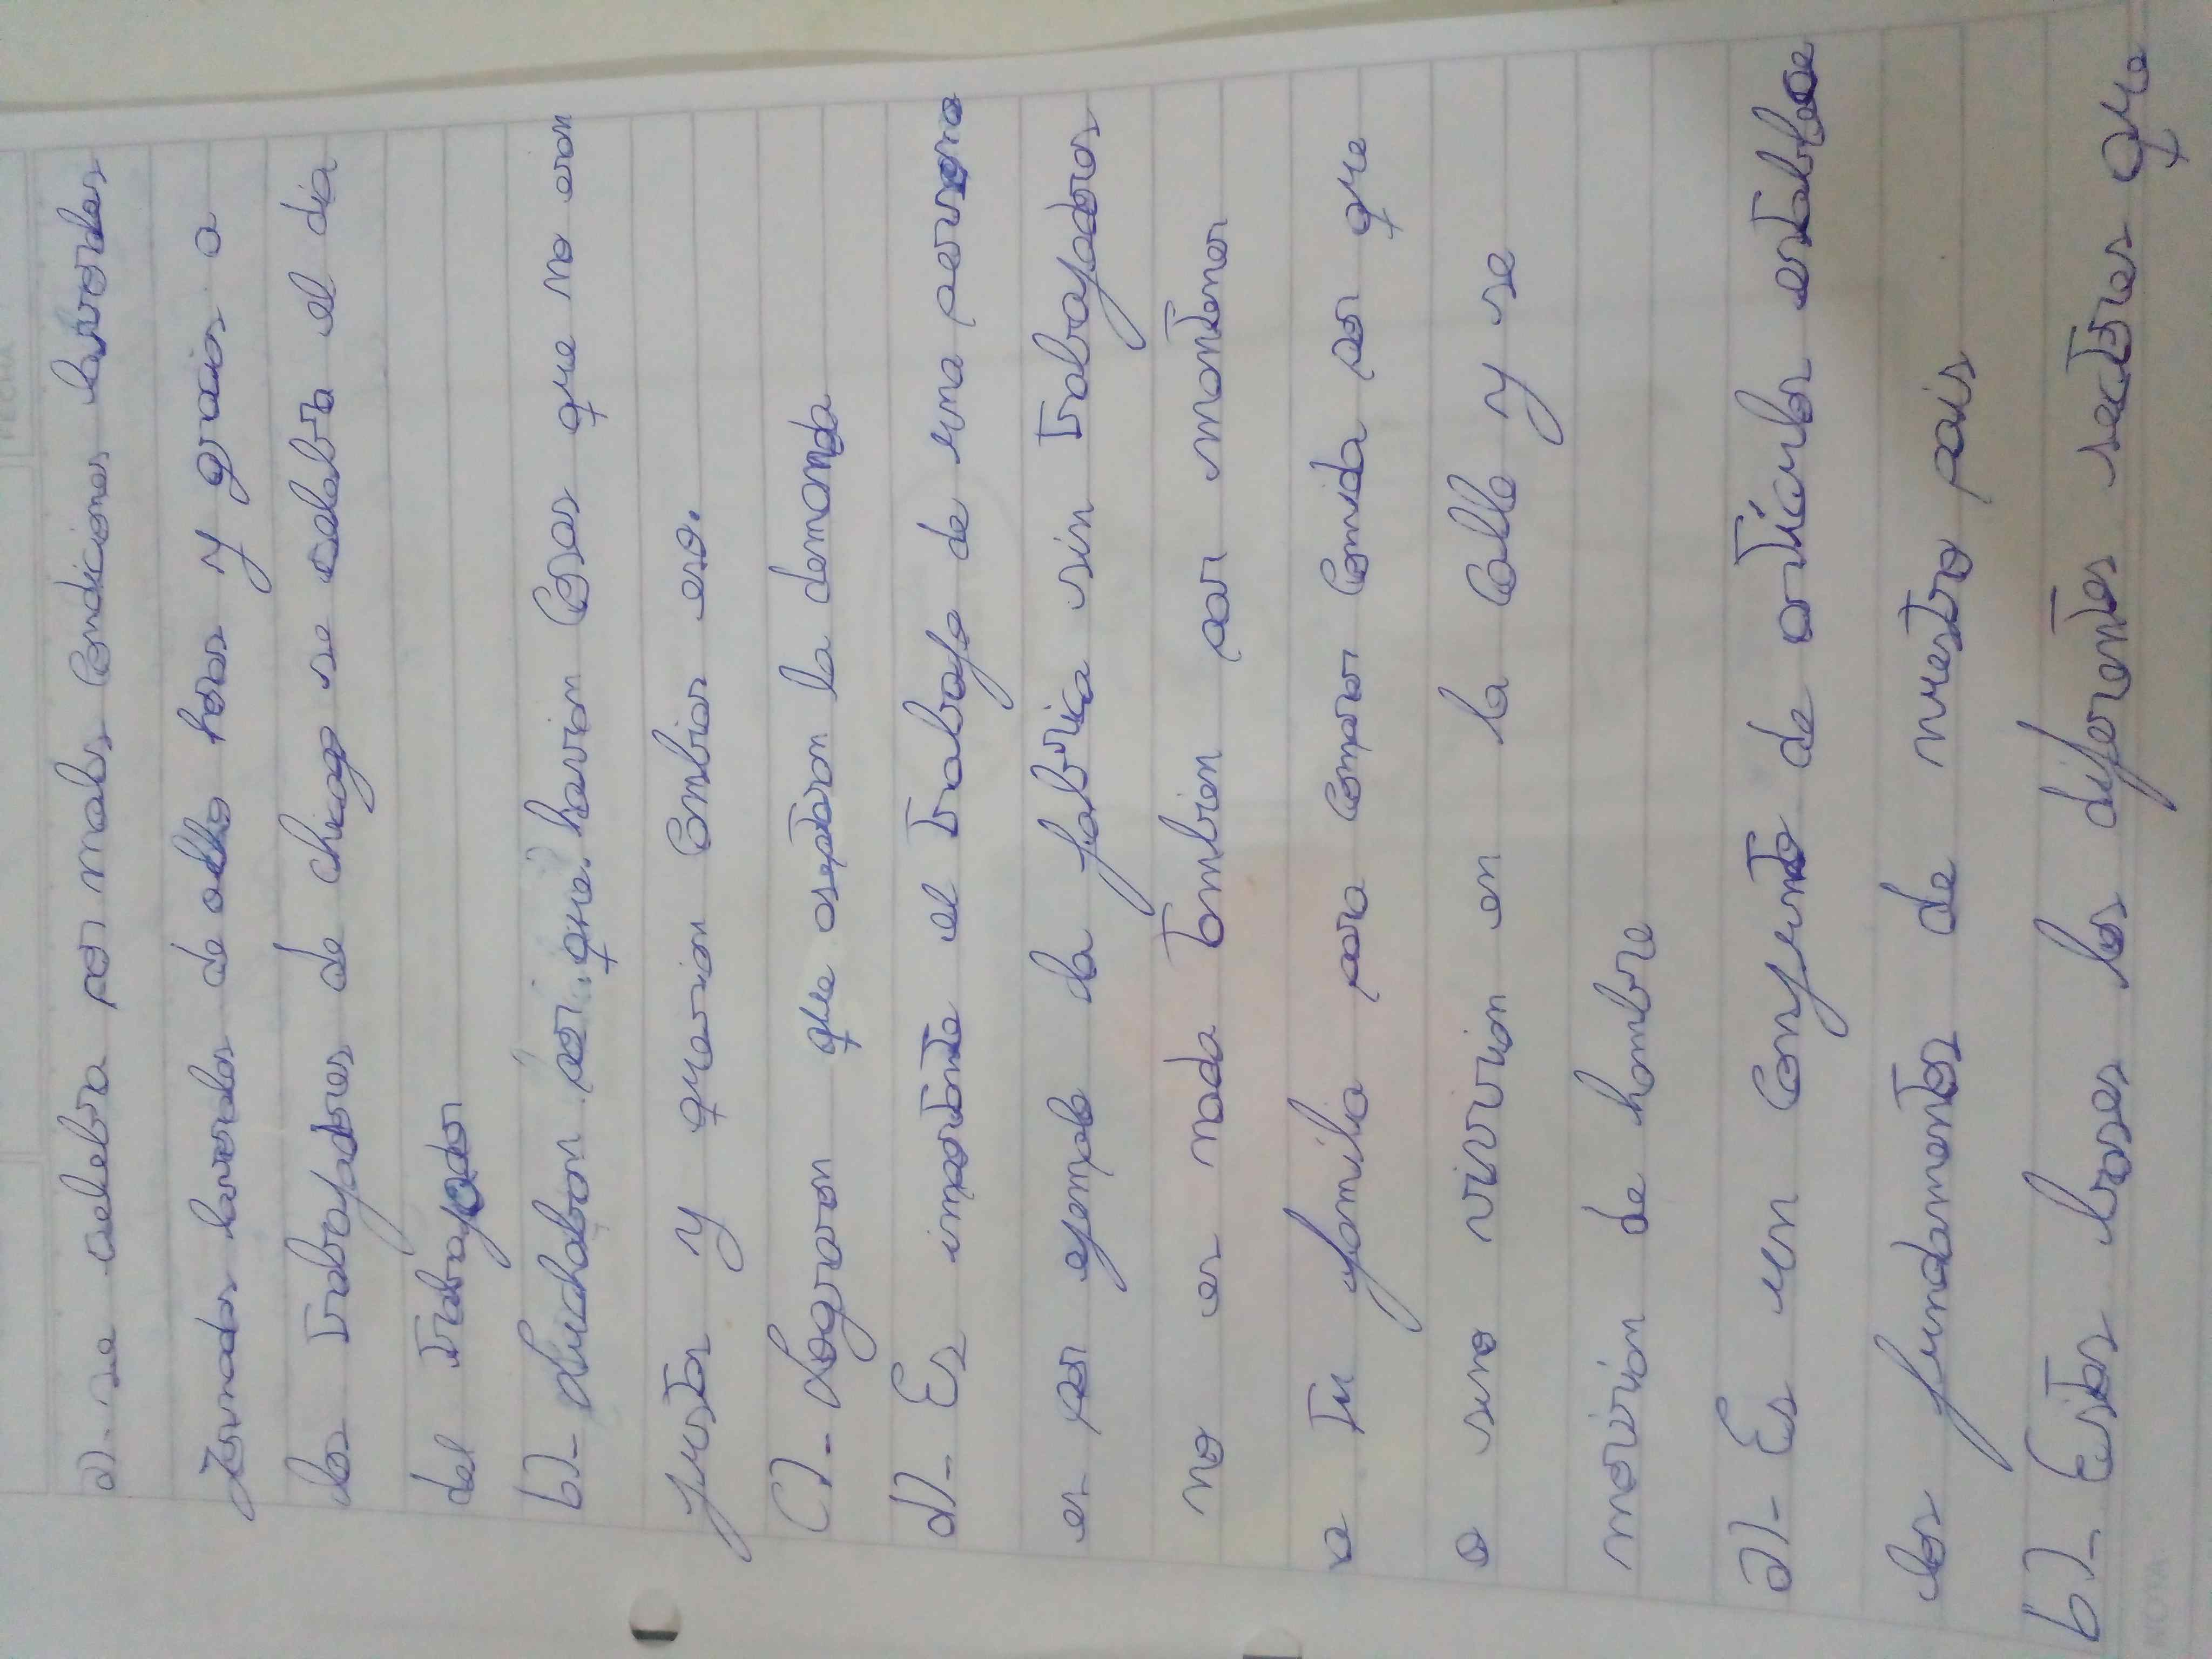 FECHA
a)- se celebra por malas Condiciones lavorales
Jornadas lavorales de ocho horas y gracias a
los Trabajadores de chicago se celebra el dia
del Trabajador
b)- Luchaban por que havian Cosas que no eran
justas y querian Cambiar eso.
C)- Lograron que aseptaran la demanda
d)- Es importante el Trabajo de una persona
es por ejemplo la fabrica sin Trabajadores
no es nada Tambien par mantener
a Tu familia para Comprar Comida por que
o sino vivirian en la Calle y se
moririan de hambre
a)- Es un Conjunto de artículos establece
los fundamentos de nuestro pais
b)- Estas bases los diferentes sectores que
NOTA